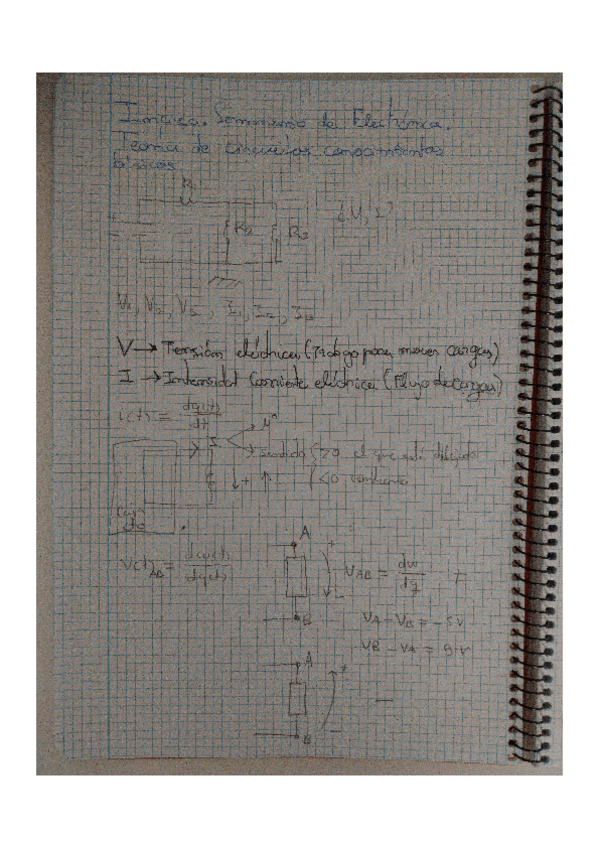 Seminario de Electrónica.
Teoría de circuitos conocimientos
básicos
R1
R2
R3
¿V, I?
V1, V2, V3, I1, I2, I3
V → Tensión eléctrica (Trabajo para mover cargas)
I → Intensidad Corriente eléctrica (Flujo de cargas)
i(t) = dq(t)/dt
I
Nº
sentido >0 el que está dibujado
<0 contrario
+
v(t)AB = dw(t)/dq(t)
A
+
-
B
VAB = dw/dq
VA - VB = -5V
VB - VA =
A
+
B
-